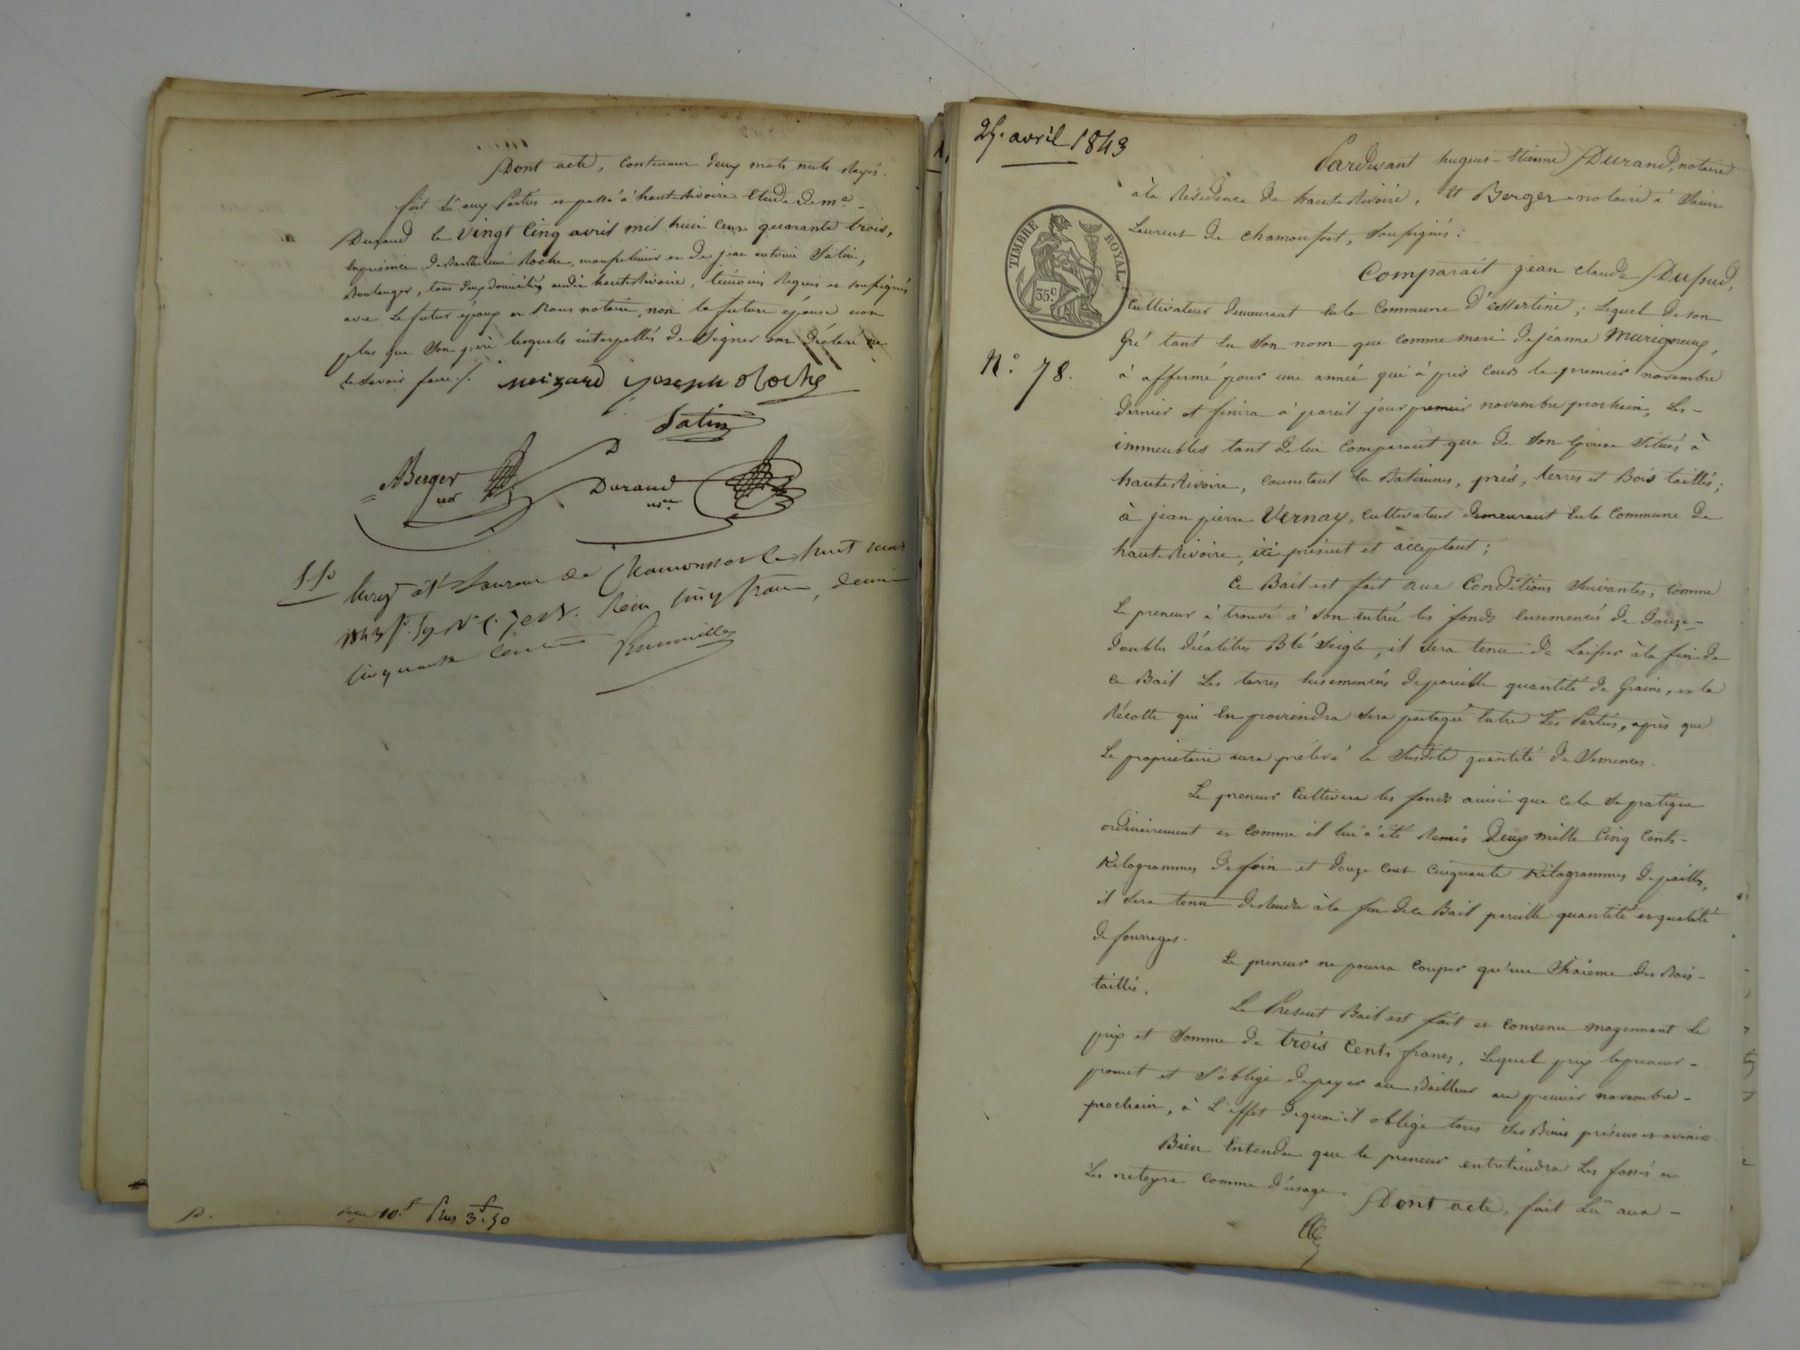 Dont acte, contenant deux mots nuls rayés.
fait lû aux parties et passé à hauterivoire Etude de me.
Durand le vingt cinq avril mil huit cent quarante trois,
En présence de Barthelemi Roche, et de jean antoine Satin,
Boulanger, tous deux domiciliés audit hauterivoire, témoins requis et soussignés
avec le futur epoux et Nous notaire, non la future épouse non
plus que son père lesquels interpellés de signer ont déclaré ne
le savoir faire /.
joseph Roche
Satin
Berger
nre
Durand
nre
Enregt à St Laurent de Chamousset le huit mai
1843 fo. Reçu cinq francs, decime
cinquante centimes
reçu 10.f Plus 3f.50
25. avril 1843
Pardevant hugues-Etienne Durand, notaire
à la Résidence de hauterivoire, Et Berger notaire à Saint
Laurent de chamousset, soussignés :
TIMBRE ROYAL
35 c
Comparait jean claude Dupud,
cultivateur demeurant En la Commune d'essertine ; Lequel de son
N.° 78.
Gré tant En son nom que comme mari de jeanne
à affermé pour une année qui à pris cours le premier novembre
dernier et finira à pareil jour premier novembre prochain, Les-
immeubles tant de lui comparant que de son épouse situés à
hauterivoire, consistant En Batiments, prés, terres et Bois taillés ;
à jean pierre Vernay, cultivateur demeurant En la Commune de
hauterivoire, ici présent et acceptant ;
Ce Bail est fait aux Conditions suivantes, comme
Le preneur à trouvé à son entrée les fonds Ensemencés de Douze-
doubles décalitres Blé seigle, il sera tenu de Laisser à la fin de
ce Bail Les terres Ensemencées de pareille quantité de Grains, et la
Récolte qui En proviendra sera partagée Entre Les Parties, après que
Le propriétaire aura prélevé la susdite quantité de Semences.
Le preneur Cultivera les fonds ainsi que cela se pratique
ordinairement et comme il lui à été Remis Deux mille Cinq Cents-
Kilogrammes de foin et douze cent Cinquante Kilogrammes de pailles,
il sera tenu de Rendre à la fin de ce Bail pareille quantité et qualité
de fourrages.
Le preneur ne pourra couper qu'un Sixieme des Bois-
taillés.
Le Present Bail est fait et convenu moyennant le
prix et Somme de trois Cents francs, Lequel prix le preneur-
promet et S'oblige de payer au Bailleur au premier novembre-
prochain, à L'effet de quoi il oblige tous Ses Biens présens et avenir.
Bien Entendu que le preneur entretiendra Les fossés et
Les netoyra comme d'usage. Dont acte, fait Lû aux-